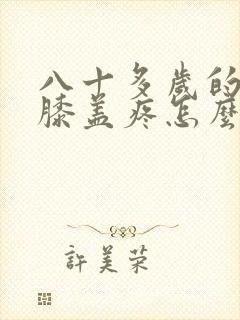 八十多歲的
膝盖疼怎麼
許美荣